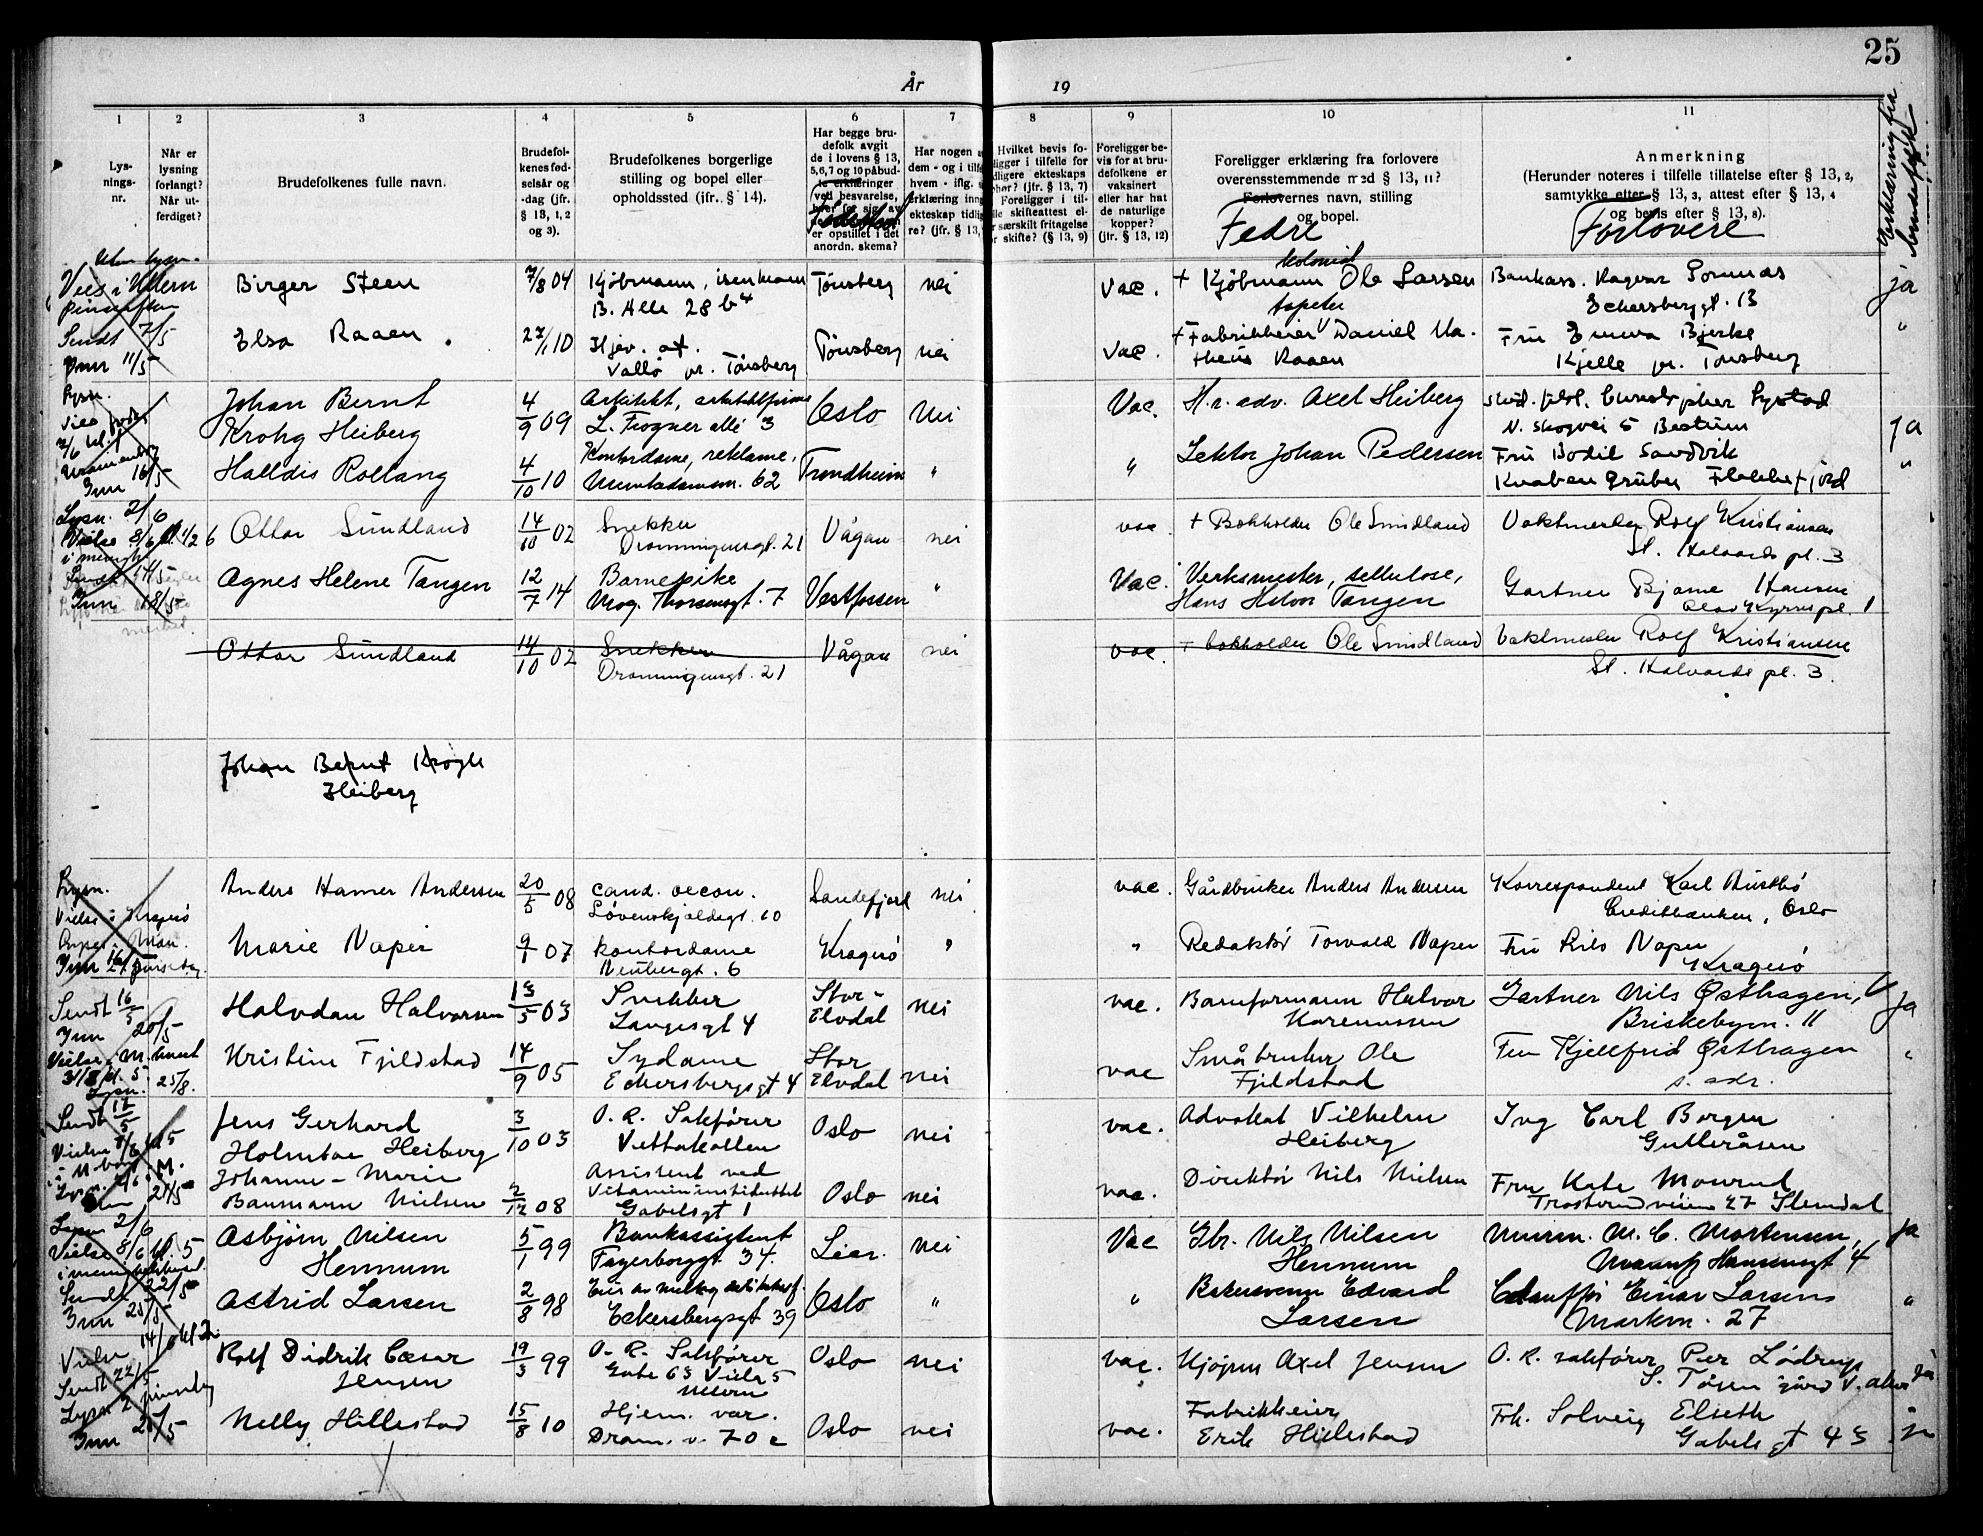 25
År
19
1
2
3
4
5
6
7
8
9
10
11
Lys-
nings-
nr.
Når er
lysning
forlangt?
Når ut-
ferdiget?
Brudefolkenes fulle navn.
Brudefol-
kenes fød-
selsår og
-dag (jfr.
§ 13, 1, 2
og 3).
Brudefolkenes borgerlige
stilling og bopel eller
opholdssted (jfr. § 14).
Har begge bru-
defolk avgit
de i lovens § 13,
5,6,7 og 10 påbud-
te erklæringer
ved besvarelse,
er opstillet i det
anordn. skema?
Fødested
Har nogen
dem - og i tilf
hvem - iflg.
erklæring inng
ekteskap tidlig
re? (jfr. § 13,
Hvilket bevis fo-
ligger i tilfelle for
dligere ekteskaps
phør? (jfr. § 13, 7)
Foreligger i til-
lle skifteattest el-
r særskilt fritagelse
r skifte? (§ 13, 9)
Foreligger be-
vis for at bru-
defolkene er
vaksinert
eller har hat
de naturlige
kopper?
(jfr. § 13, 12)
Foreligger erklæring fra forlovere
overensstemmende med § 13, 11?
Forlovernes navn, stilling
og bopel.
Fedre
Anmerkning
(Herunder noteres i tilfelle tillatelse efter § 13, 2,
samtykke efter § 13, 3, attest efter § 13, 4
og bevis efter § 13, 8).
Forlovere
Erklæring fra
brudefolk
Uten lysn.
Vies i Ullern
Pinseaften
Sendt 7/5
Inn 11/5
Birger Steen
7/8 04
Kjøbmann, isenkram
B. Alle 28 b4
Tønsberg
nei
vac.
+ Kjøbmann Ole Larsen
kolonial
Bankass. Ragnar
Eckersbergt. 13
ja
Elsa Raaen
27/1 10
Hjev. at.
Vallø pr. Tønsberg
Tønsberg
nei
vac.
tapeter
+ Fabrikkeier Daniel Ma-
theus Raaen
Fru Emma Bjerke
Kjelle pr. Tønsberg
"
Lysn.
Inn 16/5
Johan Bernt
Krohg Heiberg
4/9 09
Arkitekt, arkitektfirma
L. Frogner allé 3
Oslo
Nei
Vac.
H.r. adv. Axel Heiberg
stud. filol. Christopher Rystad
N. Skogvei 5 Bestum
ja
Halldis Rollang
4/10 10
Kontordame, reklame,
Munkedamsv. 62
Trondheim
"
"
Lektor Johan Pedersen
Fru Bodil Sandvik
Knaben Gruber Flekkefjord
"
Lysn. 2/6
Vielse 8/6 kl. 1/2 6
Sendt 14/5
Inn 18/5
Ottar Sundland
14/10 02
Snekker
Dronningensgt. 21
Vågan
nei
vac
+ Bokholder Ole Sundland
Vaktmester Rolf Kristiansen
St. Halvards pl. 3
Agnes Helene Tangen
12/7 14
Barnepike
Mog. Thorsensgt. 7
Vestfossen
"
Vac.
Verksmester, cellulose,
Hans Halvor Tangen
Gartner Bjarne Hansen
Olav Kyrres pl. 1
Ottar Sundland
14/10 02
Snekker
Dronningensgt. 21
Vågan
nei
vac.
+ bokholder Ole Sundland
Vaktmester Rolf Kristiansen
St. Halvards pl. 3.
Johan Bernt Krogh
Heiberg
Lysn.
Vielse i Kragerø
Inn 16/5
Anders Hamer Andersen
20/5 08
cand. oecon.
Løvenskjoldsgt. 10
Sandefjord
nei
vac.
Gårdbruker Anders Andersen
Korrespondent Karl Austbø
Creditbanken, Oslo
Marie Naper
9/1 07
kontordame
Neubergt. 6
Kragerø
"
"
Redaktør Torvald Naper
Fru Lilo Naper
Kragerø
Sendt 16/5
Inn 20/5
31/8 kl. 5
Lysn. 25/8.
Halvdan Halvorsen
13/5 03
Snekker
Langesgt 4
Stor-
Elvdal
nei
vac.
Baneformann Halvor
Karenussen
Gartner Nils Østhagen,
Briskebyvn. 11
Ja
Kristine Fjeldstad
14/9 05
Sydame
Eckersbergsgt 4
Stor
Elvdal
nei
vac
Småbruker Ole
Fjeldstad
Fru Kjellfrid Østhagen
s. adr.
"
Sendt 17/5
Inn 21/5
Jens Gerhard
Holmboe Heiberg
3/10 03
O. R. Sakfører
Vettakollen
Oslo
nei
vac.
Advokat Vilhelm
Heiberg
Ing Carl Borgen
Gulleråsen
Johanne-Marie
Baumann Nielsen
2/12 08
Assistent ved
Vitamininstituttet
Gabelsgt 1
Oslo
nei
vac.
Direktør Nils Nielsen
Fru Kate Monrad
Trosterudveien 27 Slemdal
Lysn 2/6
Vielse 8/6 kl. 5
Sendt 22/5
Inn 25/5
Asbjørn Nilsen
Hennum
5/1 99
Bankassistent
Fagerborggt 34.
Lier.
nei
Vac
Gbr. Nils Nilsen
Hennum
Murm. M. C. Mortensen,
Mauritz Hansensgt 4
ja
Astrid Larsen
2/8 98
Eier av melk og delikatf.
Eckersbergsgt 39
Oslo
"
"
Bakersvenn Edvard
Larsen
Chauffør Einar Larsen
Markvn. 27
"
Vielse 14/6 kl 2
Sendt 22/5
Lysn 2 pinsedag
Inn 25/5
Rolf Didrik Cæsar
Jensen
19/3 99
O. R. Sakfører
Oslo
nei
vac.
Kjøpm Axel Jensen
O. R. sakfører Per Lødrup
ja
Nelly Hillestad
15/8 10
Hjem. var.
Dram. v. 70 c
Oslo
nei
vac.
Fabrikkeier
Erik Hillestad
Frk. Solveig Elseth
Gabelsgt 43
ja